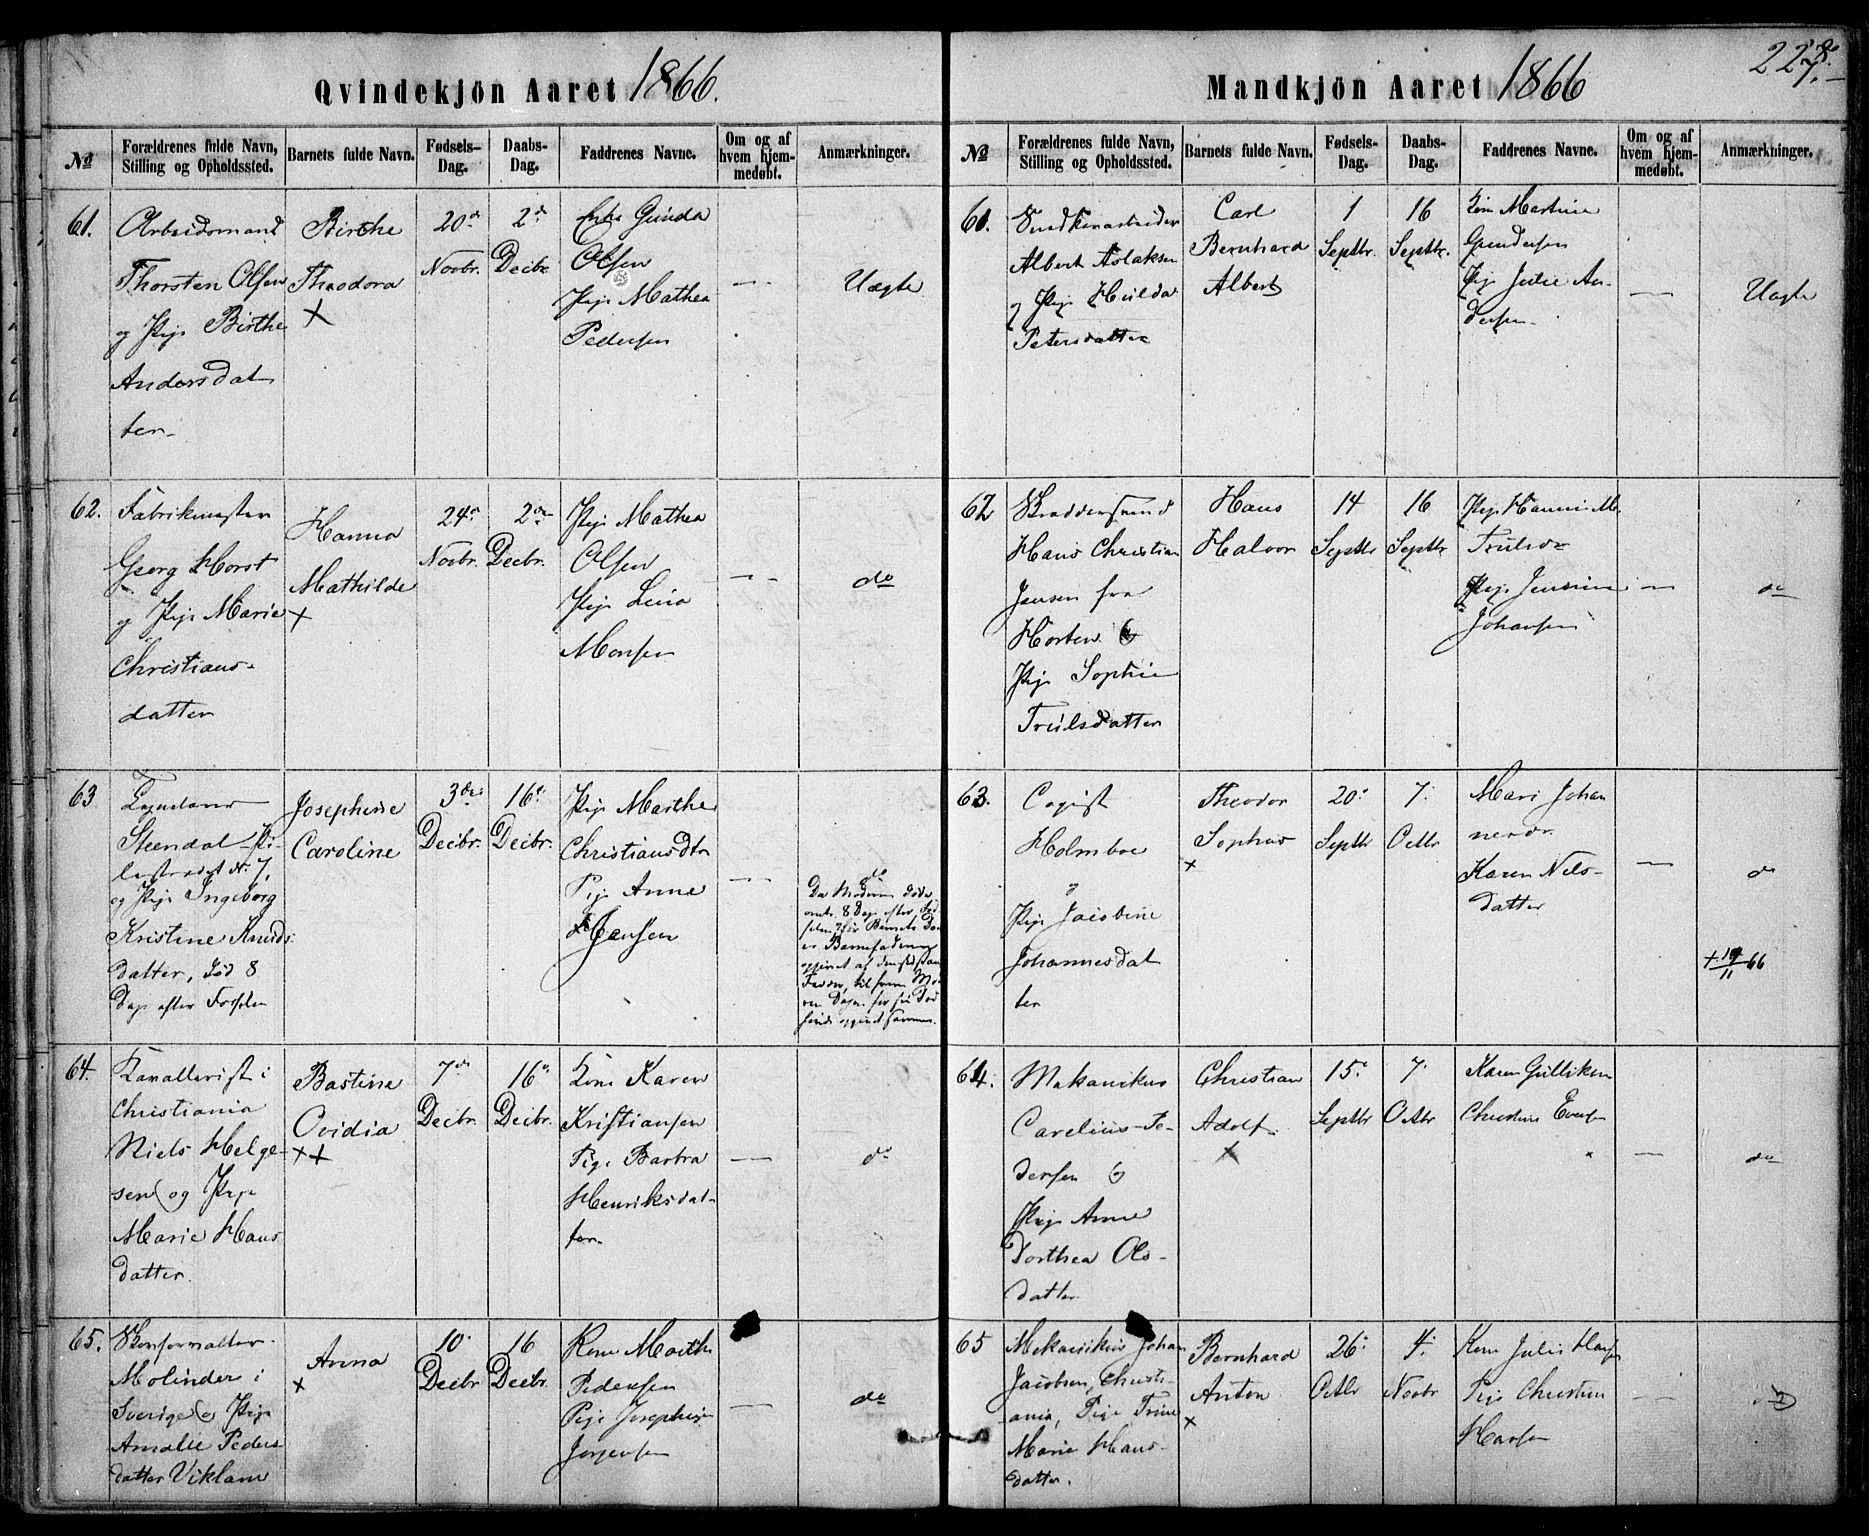 227.
8.
Qvindekjön Aaret 1866.
No
Forældrenes fulde Navn,
Stilling og Opholdssted.
Barnets fulde Navn.
Fødsels-
Dag.
Daabs-
Dag.
Faddrenes Navne.
Om og af
hvem hjem-
medøbt.
Anmærkninger.
61.
Arbeidsmand
Thorsten Olsen
og Pige Birthe
Andersdat
ter.
Birthe
Theodora
+
20de
Novbr.
2de
Decbr.
Gunda
Olsen
Pige Mathea
Pedersen
—
Uægte
62.
Fabrikmester
Georg Horst
og Pige Marie
Christians-
datter
Hanna
Mathilde
+
24de
Novbr.
2den
Decbr.
Pige Mathea
Olsen
Pige Lina
Monsen
—
do
63
Steendal
No 7,
og Pige Ingeborg
Kristine Knuds-
datter, død 8
Dage efter
Josephine
Caroline
3die
Decbr.
16de
Decbr.
Pige Marthe
Christiansdtr
Pige Anne
Jansen
—
do
Da Moderen døde
8 Dage efter
64.
Kavallerist i
Christiania
Niels Helge-
sen og Pige
Marie Hans
datter.
Bastine
Ovidia
++
7de
Decbr.
16de
Decbr.
Kone Karen
Kristiansen
Pige Barbra
Henriksdat-
ter.
—
do
65.
Molinder i
Sverige og Pige
Amalie Peders
datter Viklam
Anna
+
10.
Decbr
16
Decbr.
Kone Marthe
Pedersen
Pige Josephine
Jørgensen
—
do
Mandkjön Aaret 1866
No
Forældrenes fulde Navn,
Stilling og Opholdssted.
Barnets fulde Navn.
Fødsels-
Dag.
Daabs-
Dag.
Faddrenes Navne.
Om og af
hvem hjem-
medøbt.
Anmærkninger.
61.
Snedkerarbeider
Albert Aslaksen
og Pige Hulda
Petersdatter
Carl
Bernhard
Albert
1
Septbr.
16
Septbr.
Kone Martine
Gundersen
Pige Julie An-
dersen.
—
Uægte
62
Skræddersvend
Hans Christian
Jansen fra
Horten &
Pige Sophie
Trulsdatter
Hans
Halvor
14
Septbr
16
Septbr
Pige Hanne M.
Truls
Pige Jensine
Johansen
—
do
63.
Copist
Holmboe
og
Pige Jacobine
Johannesdat
ter
Theodor
Sophus
+
20.
Septbr
7.
Octbr
Mari Johan
nesdr.
Karen Nils-
datter
—
do
+ 19/11 66
64.
Mekanikus
Carelius Pe-
dersen &
Pige Anne
Dorthea Ols-
datter
Christian
Adolf
+
15.
Septbr
7.
Octbr
Karen Gulliksen
Christine Evens
—
do
65
Mekanikus Johan
Jacobsen, Christi-
ania, Pige Trine
Marie Hans-
datter.
Bernhard
Anton
+
26.
Octbr
4.
Novbr
Kone Julie Hansen
Pige Christine
Hansen
—
do